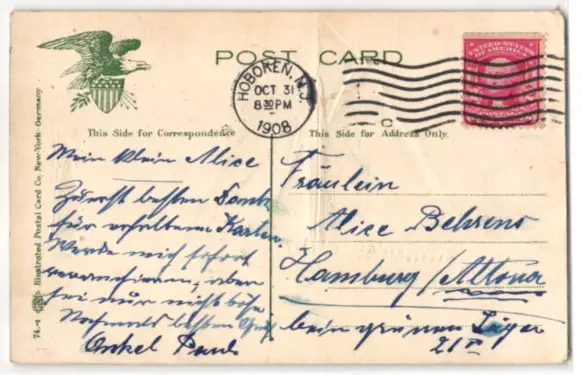 POST CARD
HOBOKEN, N.J.
OCT 31
8 30 PM
1908
UNITED STATES
OF AMERICA
This Side for Correspondence
This Side for Address Only.
Illustrated Postal Card Co. New-York - Germany
74.-4
Mein klein Alice
Zuerst besten Dank
für erhaltene Karten,
Werde mich sofort
revanchieren, aber
sei nur nicht böse
Nochmals besten Gruß
Onkel Paul
Fräulein
Alice Behrens
Hamburg/Altona
beim grünen Jäger
21